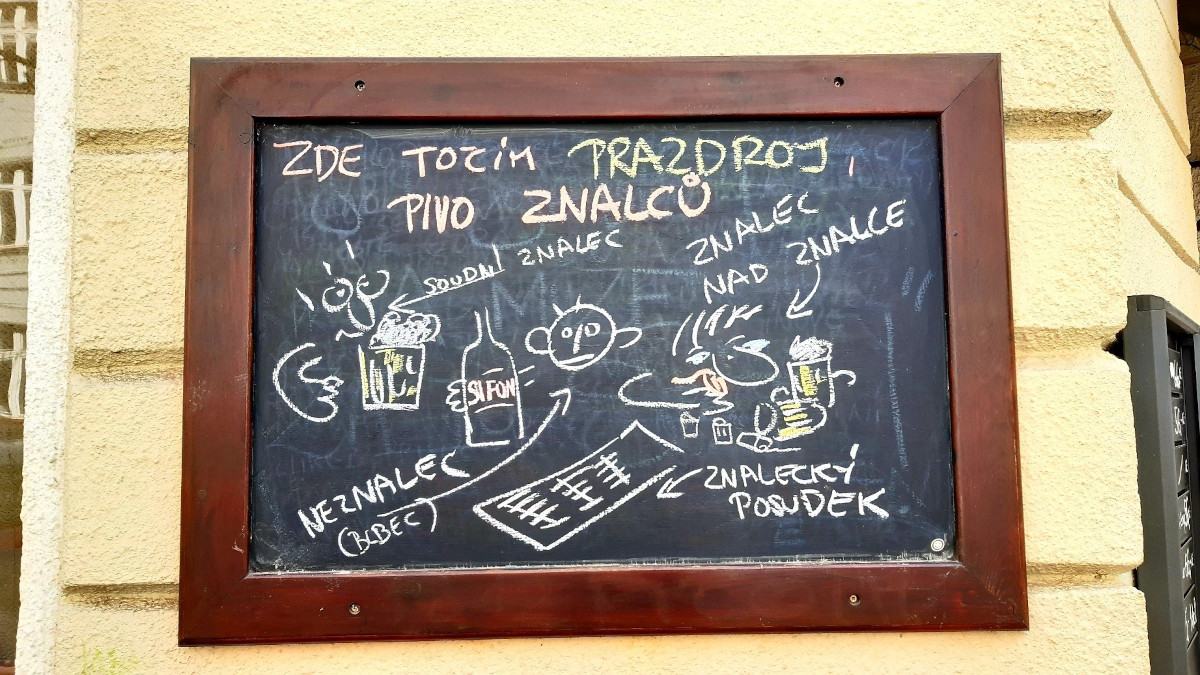 ZDE TOČÍM PRAZDROJ,
PIVO ZNALCŮ
SOUDNÍ ZNALEC
ZNALEC
NAD ZNALCE
SIFON
NEZNALEC
(BLBEC)
ZNALECKÝ
POSUDEK